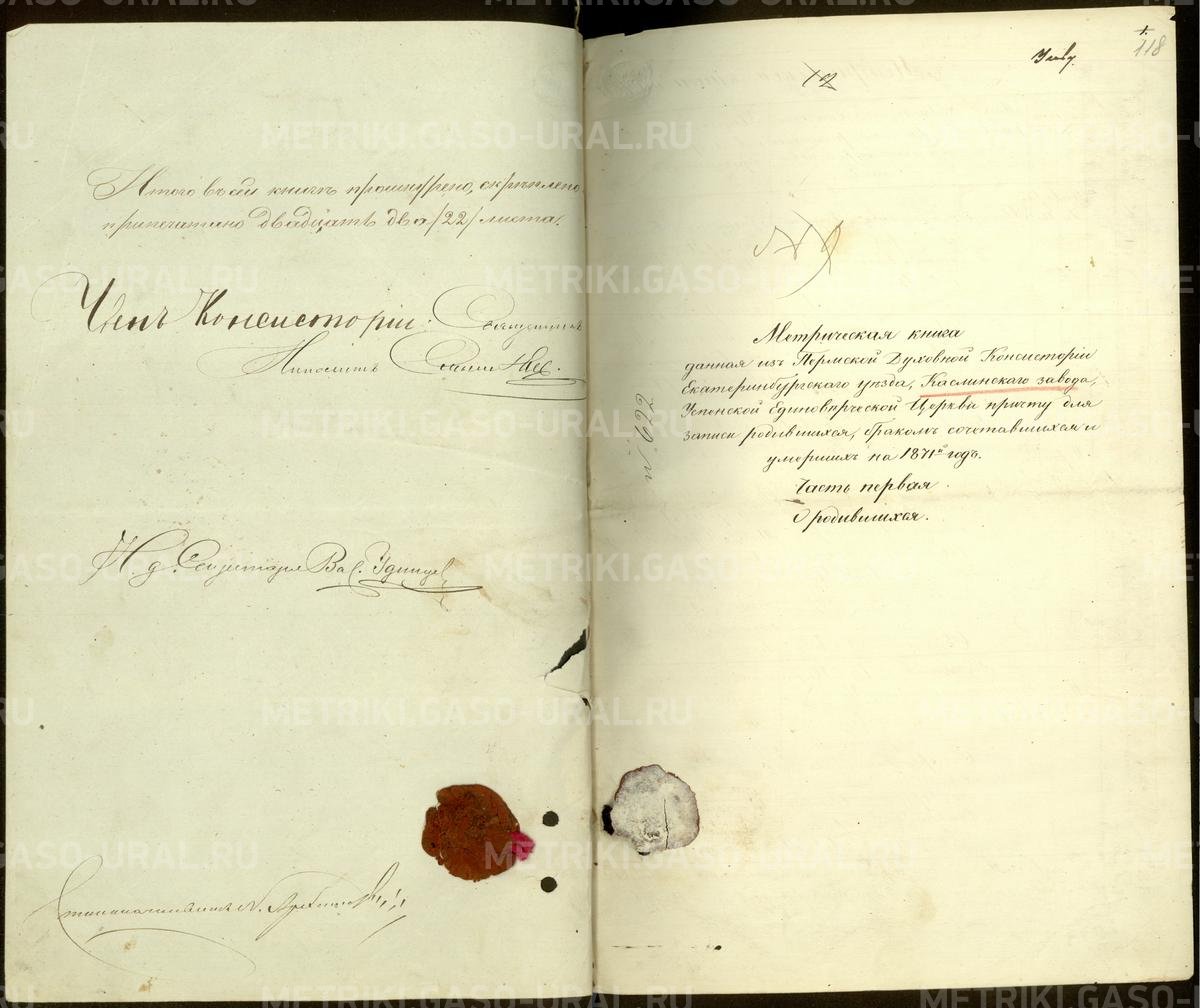 Итого въ сей книгѣ прошнурено, скрѣплено,
припечатано двадцать два /22/ листа.
Членъ Консисторіи: Священникъ
Ипполитъ
И. д. Секретаря Вас. Удинцев
Столоначальникъ
118
Метрическая книга
данная изъ Пермской Духовной Консисторіи
Екатеринбургскаго уѣзда, Каслинскаго завода,
Успенской Единовѣрческой Церкви причту для
записи родившихся, бракомъ сочетавшихся и
умершихъ на 1871й годъ.
Часть первая
О родившихся.
№ 622
METRIKI.GASO-URAL.RU